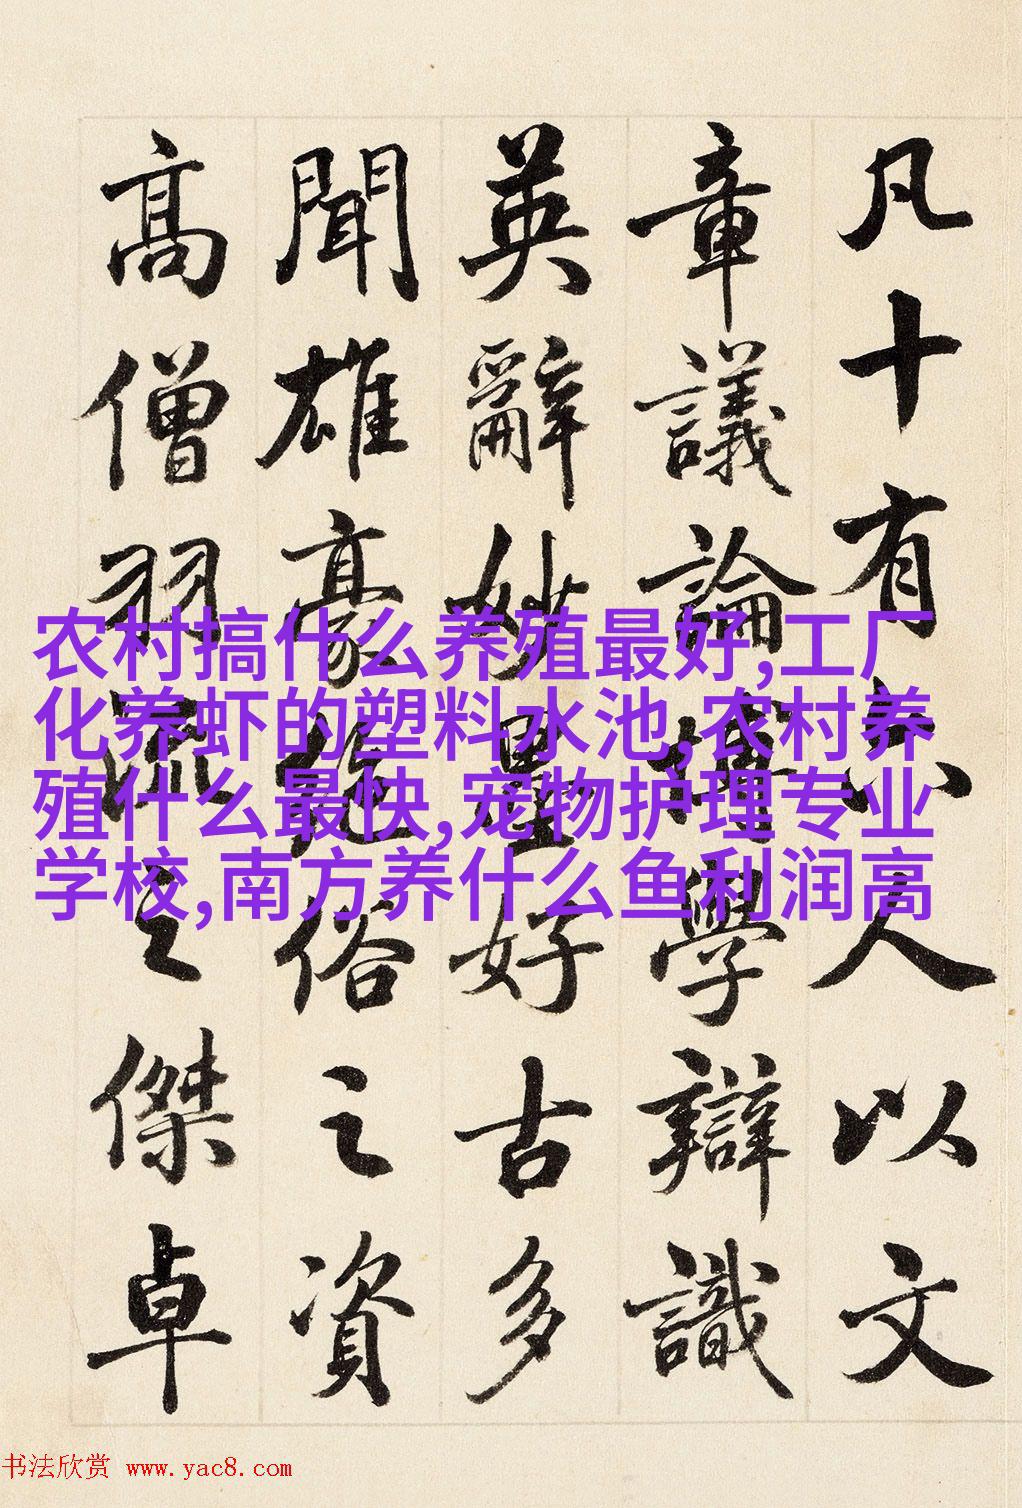 凡十有六人以文
章議論博學辯識
英辭妙墨好古多
聞雄豪絕俗之資
高僧羽流之傑卓
农村搞什么养殖最好,工厂
化养虾的塑料水池,农村养
殖什么最快,宠物护理专业
学校,南方养什么鱼利润高
书法欣赏 www.yac8.com